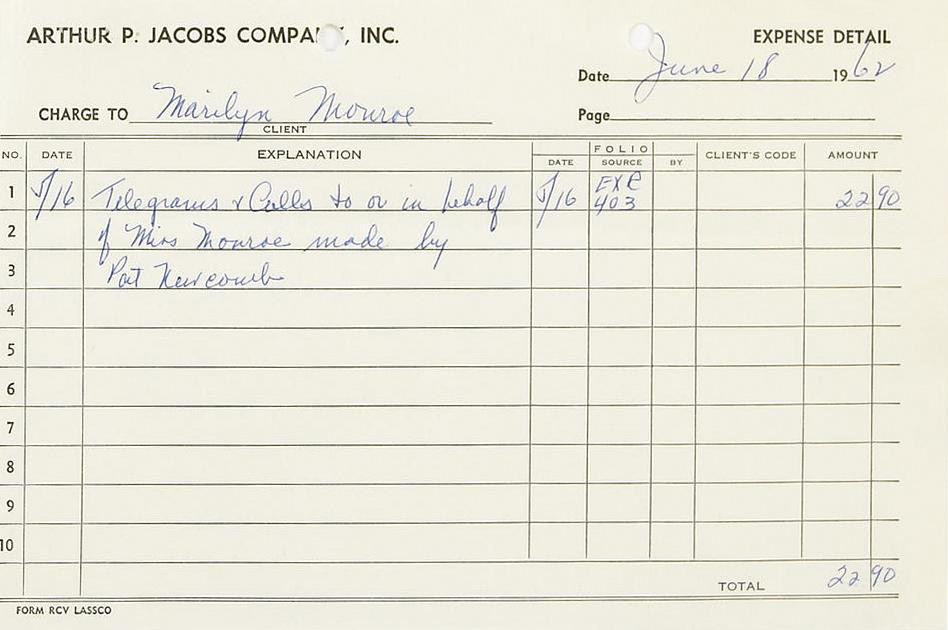 ARTHUR P. JACOBS COMPANY, INC.
EXPENSE DETAIL
Date June 18 1962
CHARGE TO Marilyn Monroe
CLIENT
Page
NO. DATE EXPLANATION DATE FOLIO SOURCE BY CLIENT'S CODE AMOUNT
1 5/16 Telegrams & Calls to or in behalf 5/16 EXP 403 22 90
2 of Miss Monroe made by
3 Pat Newcomb
4
5
6
7
8
9
10
TOTAL 22 90
FORM RCV LASSCO